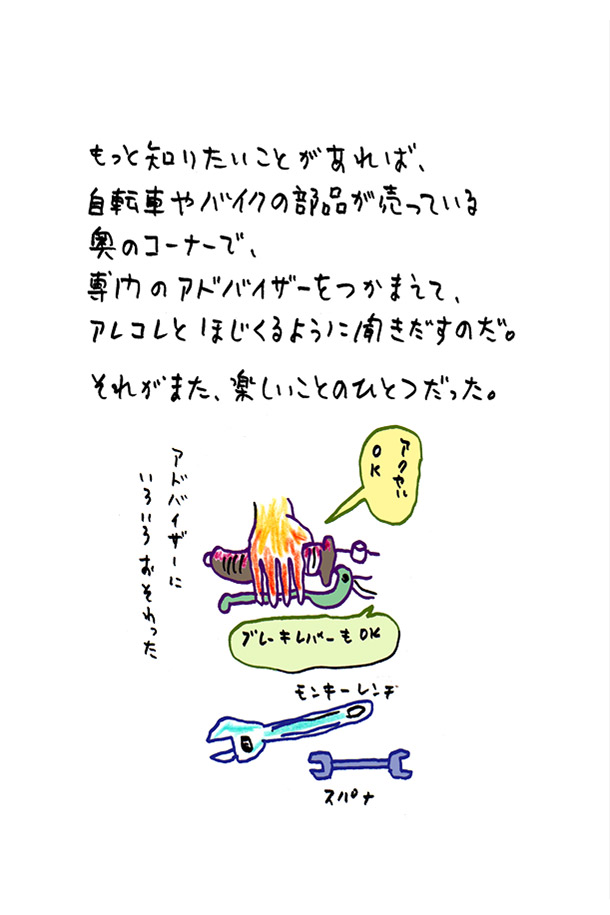 もっと知りたいことがあれば、
自転車やバイクの部品が売っている
奥のコーナーで、
専門のアドバイザーをつかまえて、
アレコレとほじくるように聞きだすのだ。
それがまた、楽しいことのひとつだった。
アドバイザーに
いろいろおそわった
アクセル
OK
ブレーキレバーもOK
モンキーレンチ
スパナ